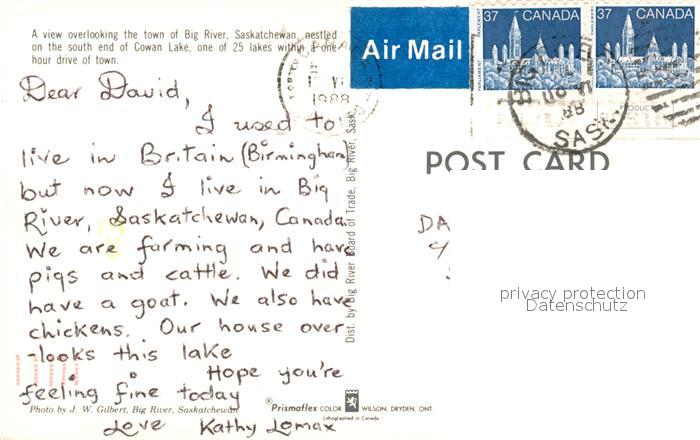 A view overlooking the town of Big River, Saskatchewan, nestled
on the south end of Cowan Lake, one of 25 lakes within a one
hour drive of town.
Dear David,
I used to
live in Britain (Birmingham)
but now I live in Big
River, Saskatchewan, Canada.
We are farming and have
pigs and cattle. We did
have a goat. We also have
chickens. Our house over-
-looks this lake
Hope you're
feeling fine today
Love Kathy Lomax
Photo by J. W. Gilbert, Big River, Saskatchewan
Dist. by Big River Board of Trade, Big River, Sask.
Prismaflex COLOR WILSON, DRYDEN, ONT.
Lithographed in Canada
1988
Air Mail
37 CANADA
PARLIAMENT
37 CANADA
PARLEMENT
88
SASK
POST CARD
DA
c/
privacy protection
Datenschutz